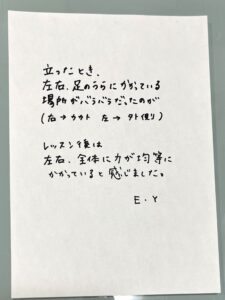 立ったとき、
左右、足のうらにかかっている
場所がバラバラだったのが
(右→カカト 左→外側)
レッスン後は
左右、全体に力が均等に
かかっていると感じました。
E.Y